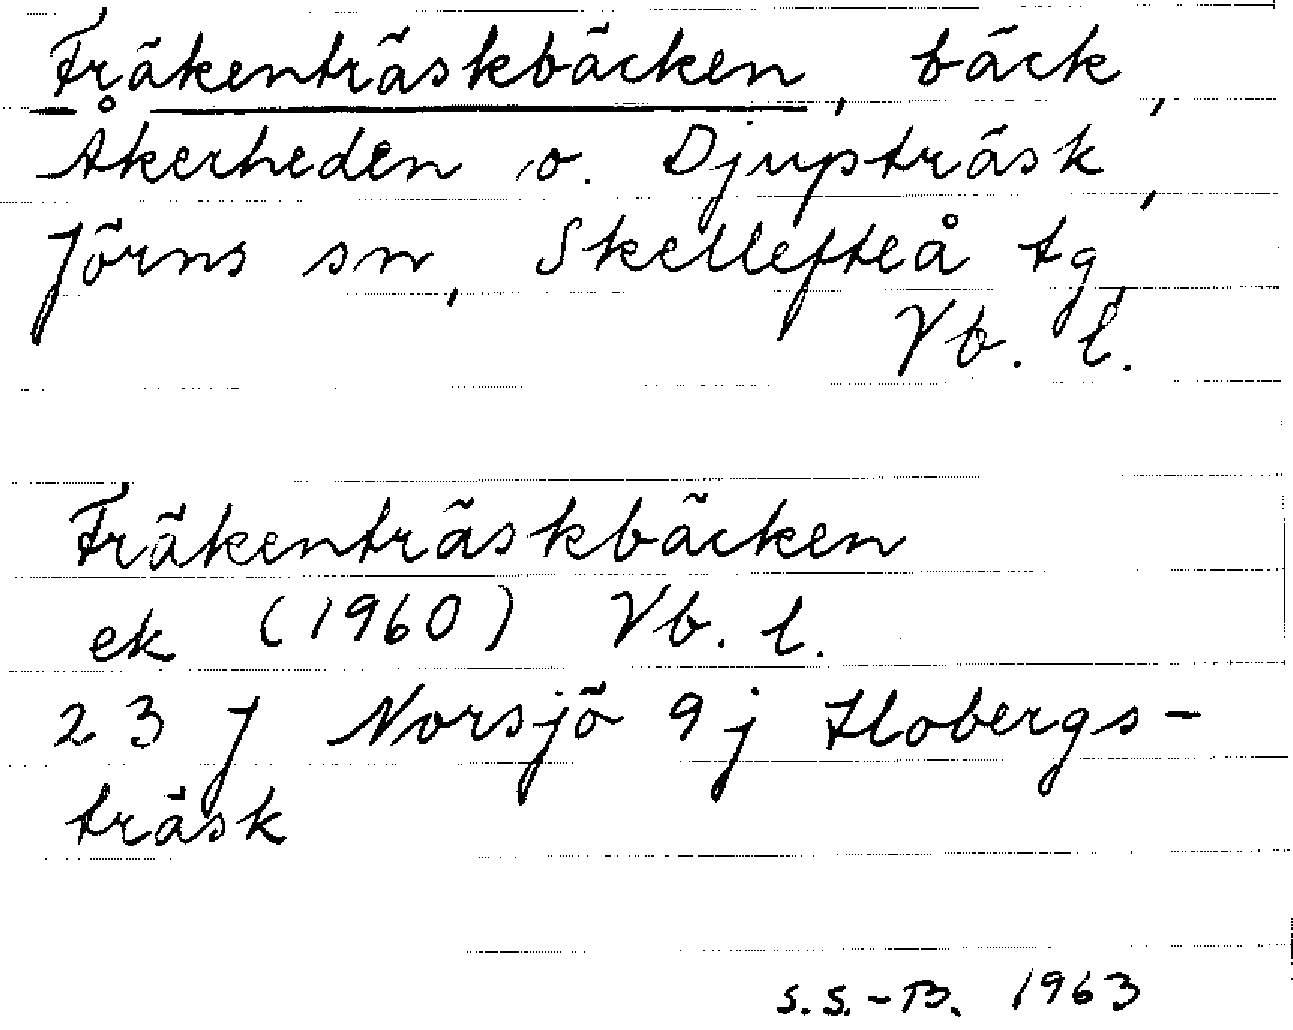 Fräkenträskbäcken, bäck,
Åkerheden o. Djupträsk,
Jörns sn, Skellefteå tg,
Vb. l.
Fräkenträskbäcken
ek (1960) Vb. l.
23 J Norsjö 9j Flobergs-
träsk
S.S.-B. 1963